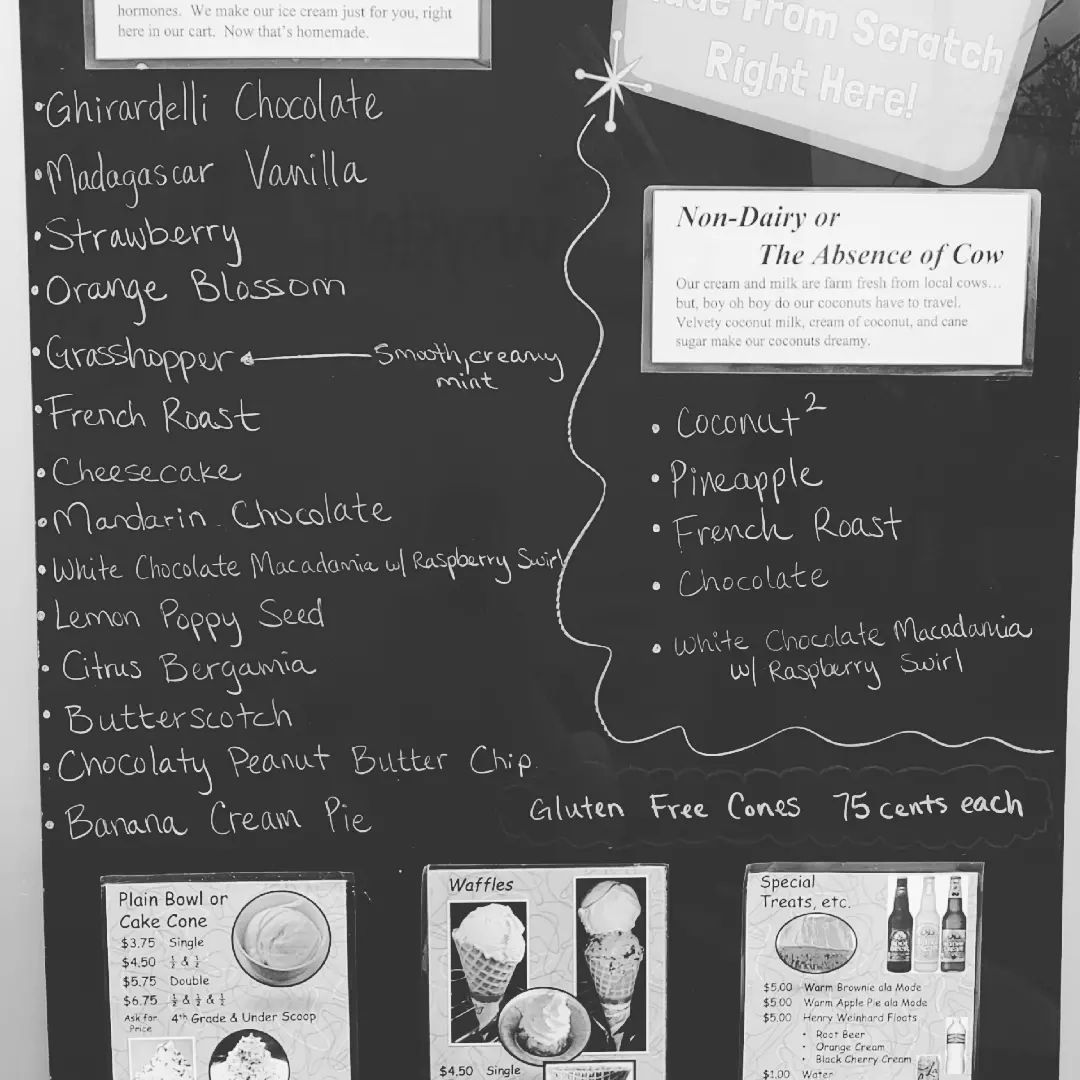 hormones. We make our ice cream just for you, right
here in our cart. Now that's homemade.
From Scratch
Right Here!
•Ghirardelli Chocolate
•Madagascar Vanilla
•Strawberry
•Orange Blossom
•Grasshopper
Smooth, creamy
mint
•French Roast
•Cheesecake
•Mandarin Chocolate
•White Chocolate Macadamia w/ Raspberry Swirl
•Lemon Poppy Seed
•Citrus Bergamia
•Butterscotch
•Chocolaty Peanut Butter Chip
•Banana Cream Pie
Non-Dairy or
The Absence of Cow
Our cream and milk are farm fresh from local cows…
but, boy oh boy do our coconuts have to travel.
Velvety coconut milk, cream of coconut, and cane
sugar make our coconuts dreamy.
• Coconut²
• Pineapple
• French Roast
• Chocolate
• White Chocolate Macadamia
w/ Raspberry Swirl
Gluten Free Cones 75 cents each
Plain Bowl or
Cake Cone
$3.75 Single
$4.50 ½ & ½
$5.75 Double
$6.75 ½ & ½ & ½
Ask for Price 4th Grade & Under Scoop
Waffles
$4.50 Single
Special
Treats, etc.
$5.00 Warm Brownie ala Mode
$5.00 Warm Apple Pie ala Mode
$5.00 Henry Weinhard Floats
• Root Beer
• Orange Cream
• Black Cherry Cream
$1.00 Water